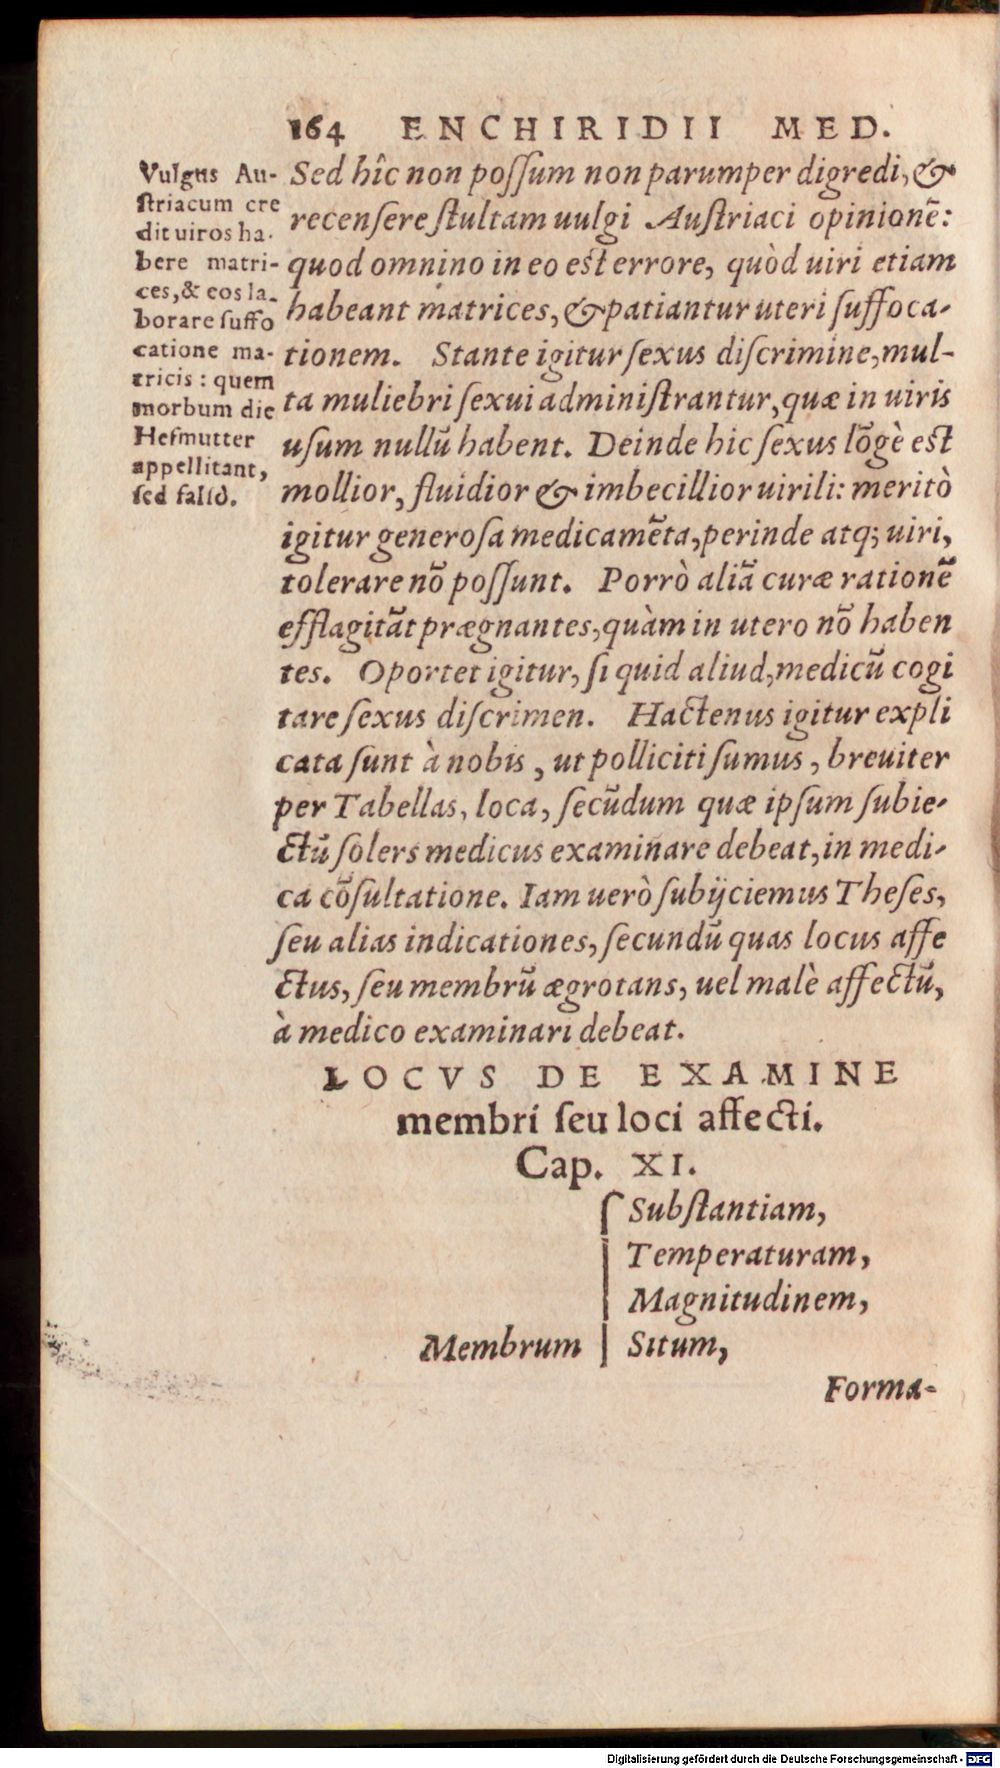 164 ENCHIRIDII MED.
Vulgus Au-
ſtriacum cre
dit uiros ha-
bere matri-
ces, & eos la-
borare ſuffo
catione ma-
tricis : quem
morbum die
Hefmutter
appellitant,
ſed falſo.
Sed hîc non poſſum non parumper digredi, &
recenſere ſtultam uulgi Auſtriaci opinionē:
quod omnino in eo est errore, quòd uiri etiam
habeant matrices, & patiantur uteri ſuffoca-
tionem. Stante igitur ſexus diſcrimine, mul-
ta muliebri ſexui adminiſtrantur, quæ in uiris
uſum nullū habent. Deinde hic ſexus lōgè est
mollior, fluidior & imbecillior uirili: meritò
igitur generoſa medicamēta, perinde atq; uiri,
tolerare nō poſſunt. Porrò aliā curæ rationē
efflagitāt prægnantes, quàm in utero nō haben
tes. Oportet igitur, ſi quid aliud, medicū cogi
tare ſexus diſcrimen. Hactenus igitur expli
cata ſunt à nobis, ut polliciti ſumus, breuiter
per Tabellas, loca, ſecūdum quæ ipſum ſubie-
ctū ſolers medicus examinare debeat, in medi-
ca cōſultatione. Iam uerò ſubijciemus Theſes,
ſeu alias indicationes, ſecundū quas locus affe
ctus, ſeu membrū ægrotans, uel malè affectū,
à medico examinari debeat.
LOCVS DE EXAMINE
membri ſeu loci affecti.
Cap. XI.
Subſtantiam,
Temperaturam,
Magnitudinem,
Membrum Situm,
Forma-
Digitalisierung gefördert durch die Deutsche Forschungsgemeinschaft - DFG